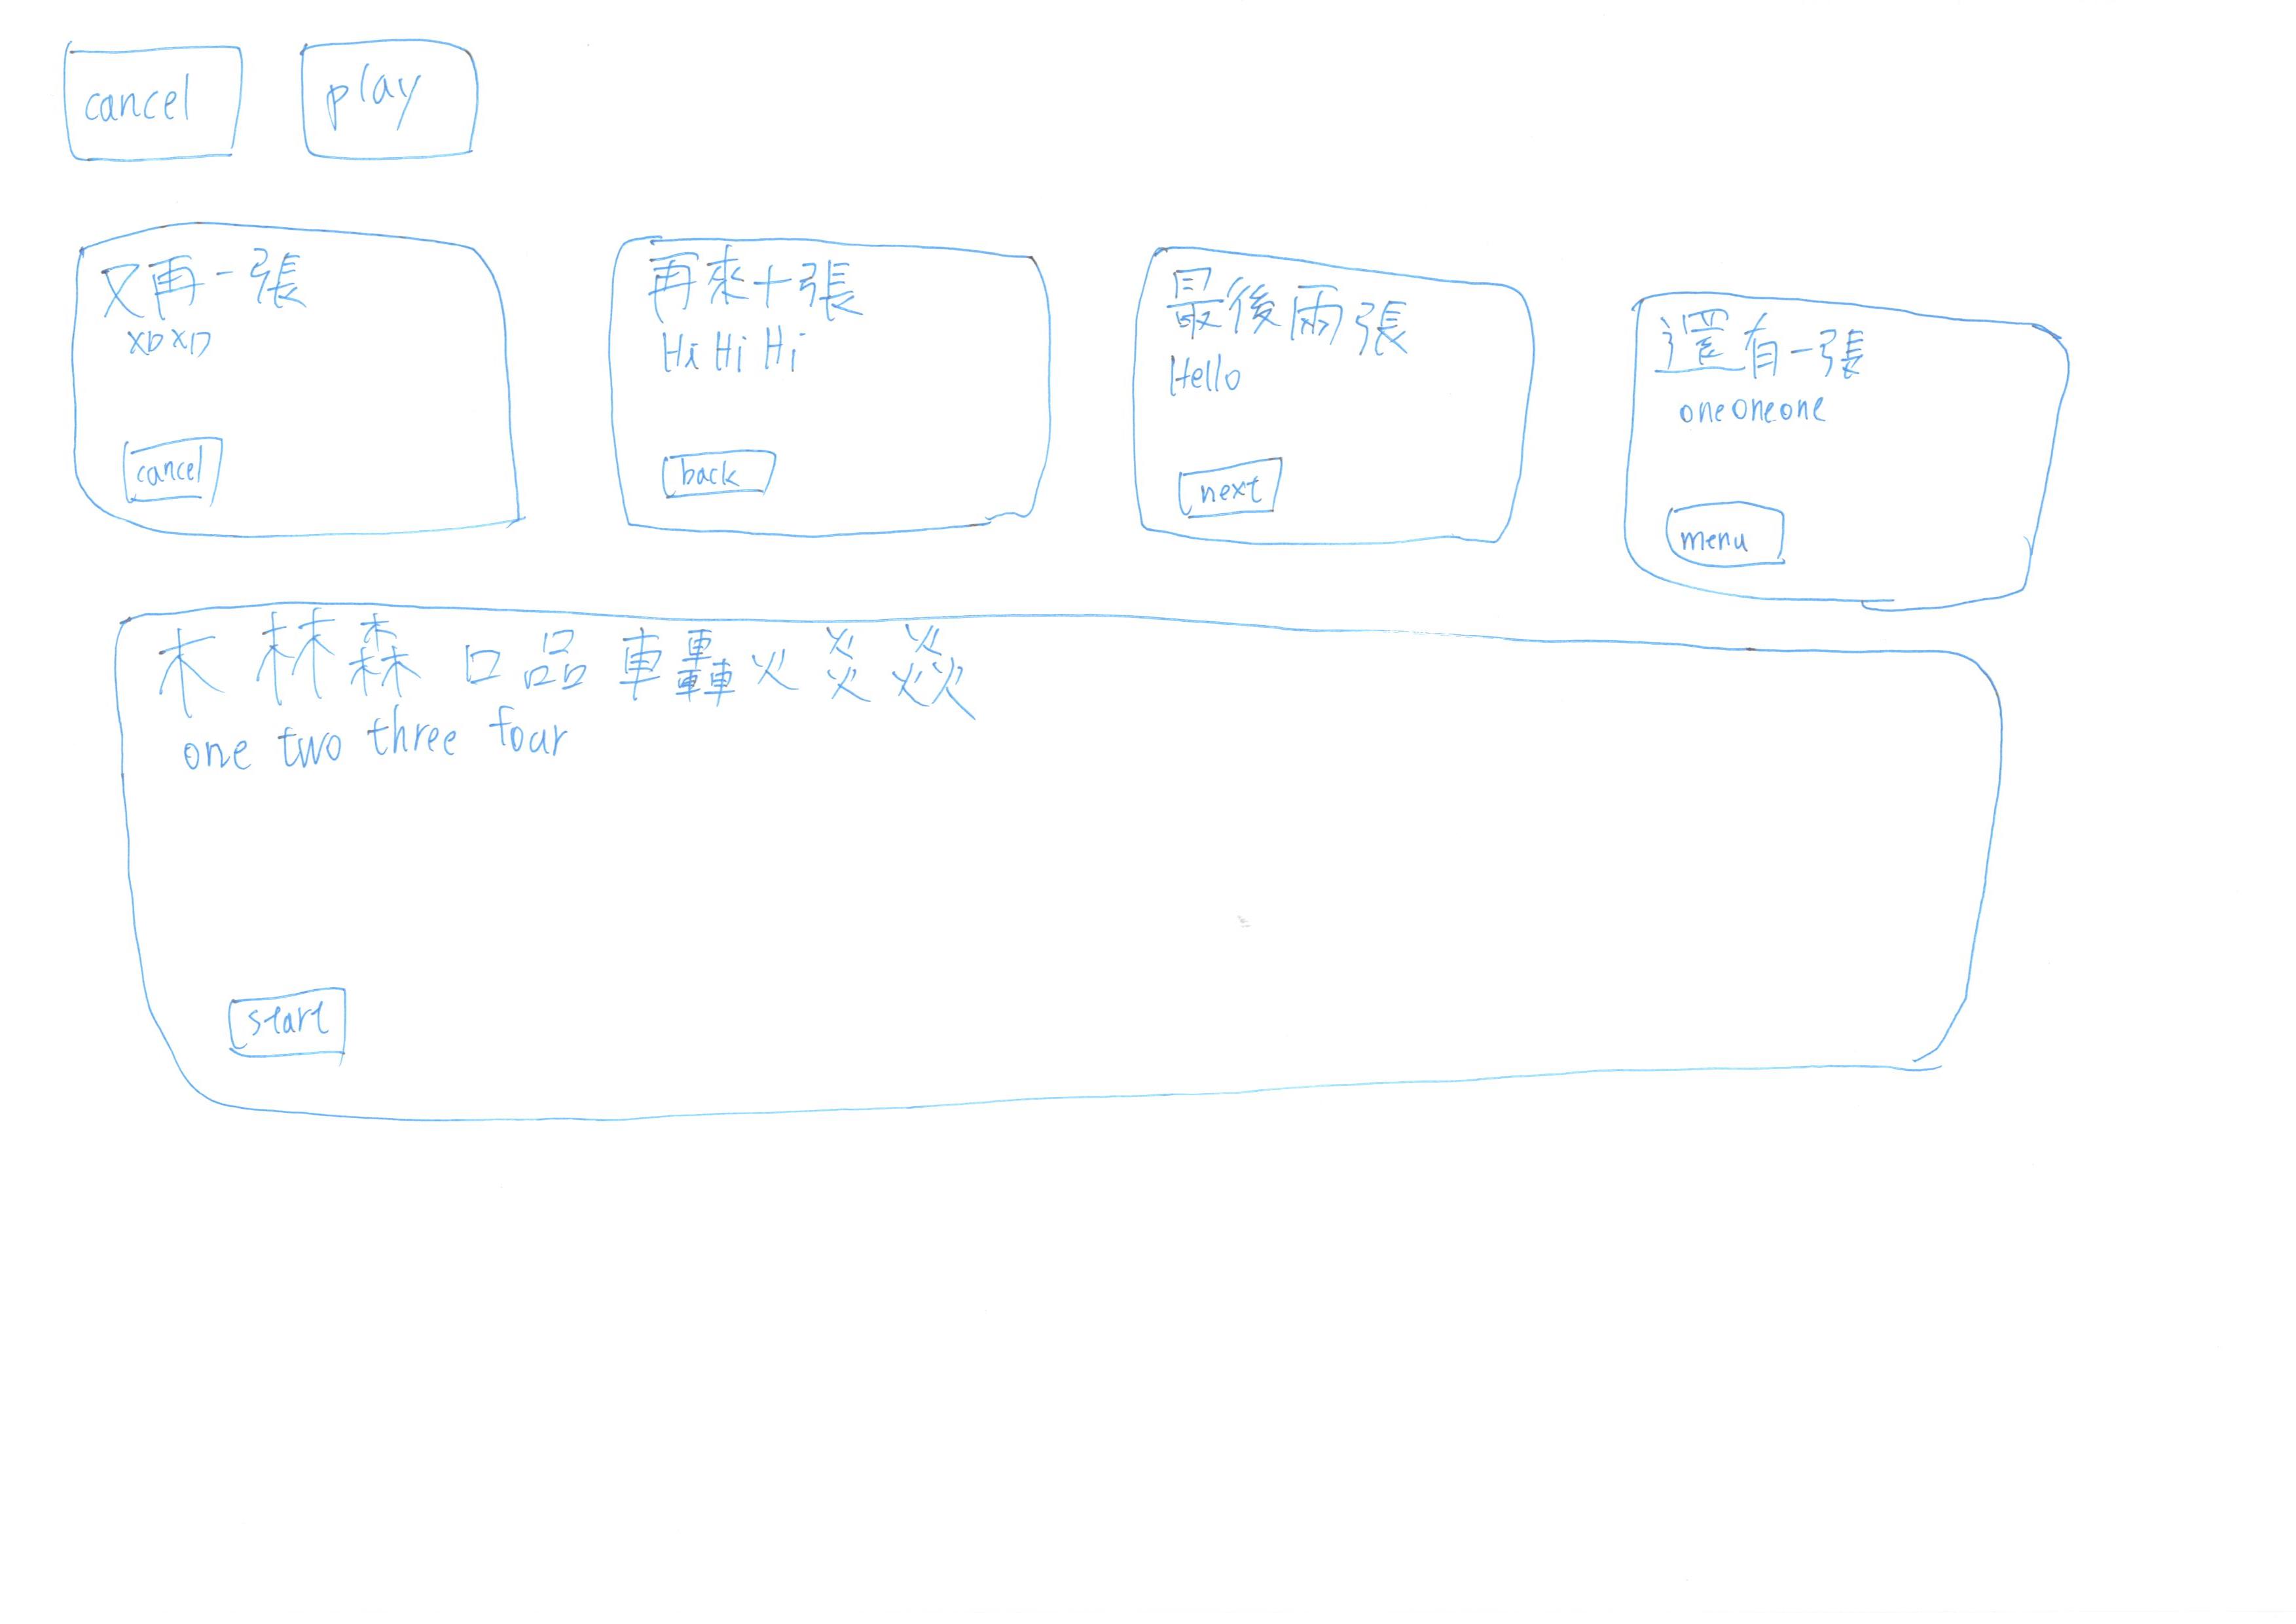 cancel
play
又再一張
XDXD
cancel
再來十張
Hi Hi Hi
back
最後兩張
Hello
next
還有一張
oneoneone
menu
木 林 森 口 品 車 轟 火 炎 焱
one two three four
start